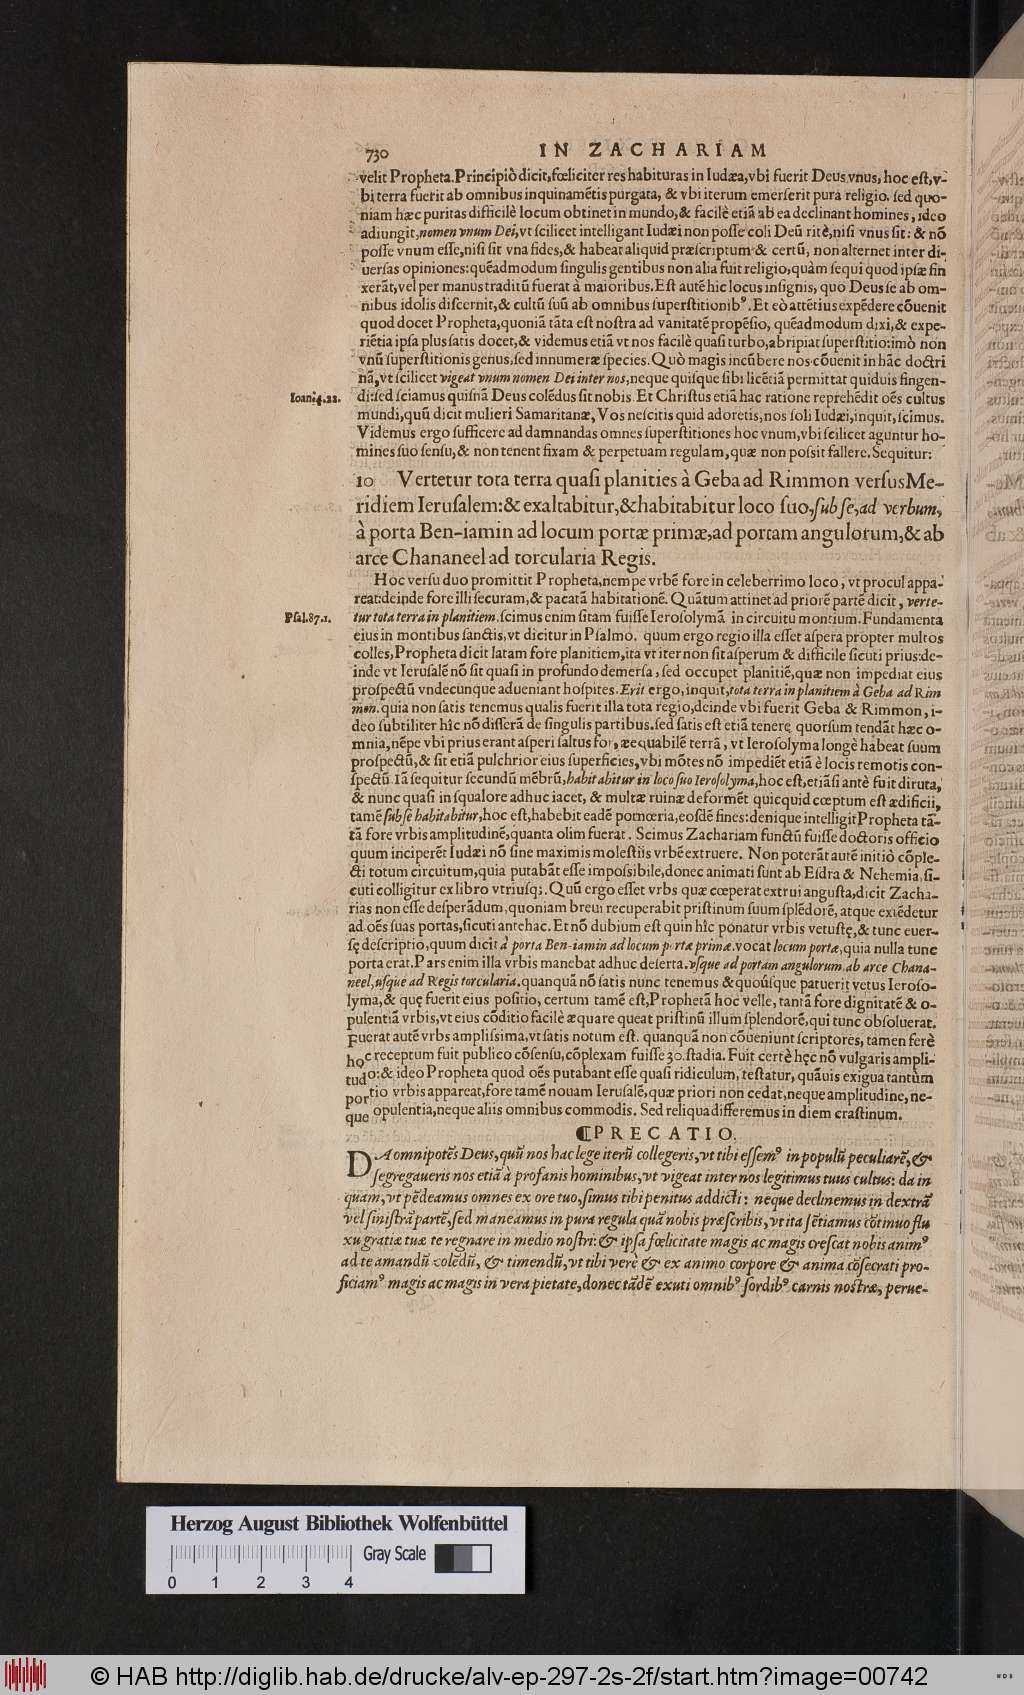 730 IN ZACHARIAM
velit Propheta. Principiò dicit, fœliciter res habituras in Iudæa, vbi fuerit Deus vnus, hoc est, v-
bi terra fuerit ab omnibus inquinamẽtis purgata, & vbi iterum emerserit pura religio. sed quo-
niam hæc puritas difficilè locum obtinet in mundo, & facilè etiã ab ea declinant homines, ideo
adiungit, nomen vnum Dei, vt scilicet intelligant Iudæi non posse coli Deũ ritè, nisi vnus sit: & nõ
posse vnum esse, nisi sit vna fides, & habeat aliquid præscriptum & certũ, non alternet inter di-
uersas opiniones: quẽadmodum singulis gentibus non alia fuit religio, quàm sequi quod ipsæ fin
xerãt, vel per manus traditũ fuerat à maioribus. Est autẽ hic locus insignis, quo Deus se ab om-
nibus idolis discernit, & cultũ suũ ab omnibus superstitionibꝰ. Et eò attẽtius expẽdere cõuenit
quod docet Propheta, quoniã tãta est nostra ad vanitatẽ propẽsio, quẽadmodum dixi, & expe-
riẽtia ipsa plus satis docet, & videmus etiã vt nos facilè quasi turbo, abripiat superstitio: imò non
vnũ superstitionis genus, sed innumeræ species. Quò magis incũbere nos cõuenit in hãc doctri
nã, vt scilicet vigeat vnum nomen Dei inter nos, neque quisque sibi licẽtiã permittat quiduis fingen-
Ioan. 4.22. di: sed sciamus quisnã Deus colẽdus sit nobis. Et Christus etiã hac ratione reprehẽdit oẽs cultus
mundi, quũ dicit mulieri Samaritanæ, Vos nescitis quid adoretis, nos soli Iudæi, inquit, scimus.
Videmus ergo sufficere ad damnandas omnes superstitiones hoc vnum, vbi scilicet aguntur ho-
mines suo sensu, & non tenent fixam & perpetuam regulam, quæ non possit fallere. Sequitur:
10 Vertetur tota terra quasi planities à Geba ad Rimmon versus Me-
ridiem Ierusalem: & exaltabitur, & habitabitur loco suo, sub se, ad verbum,
à porta Ben-iamin ad locum portæ primæ, ad portam angulorum, & ab
arce Chananeel ad torcularia Regis.
Hoc versu duo promittit Propheta, nempe vrbẽ fore in celeberrimo loco, vt procul appa-
reat: deinde fore illi securam, & pacatã habitationẽ. Quãtum attinet ad priorẽ partẽ dicit, verte-
Psal. 87.1. tur tota terra in planitiem. scimus enim sitam fuisse Ierosolymã in circuitu montium. Fundamenta
eius in montibus sanctis, vt dicitur in Psalmo. quum ergo regio illa esset aspera propter multos
colles, Propheta dicit latam fore planitiem, ita vt iter non sit asperum & difficile sicuti prius: de-
inde vt Ierusalẽ nõ sit quasi in profundo demersa, sed occupet planitiẽ, quæ non impediat eius
prospectũ vndecunque adueniant hospites. Erit ergo, inquit, tota terra in planitiem à Geba ad Rim
mon. quia non satis tenemus qualis fuerit illa tota regio, deinde vbi fuerit Geba & Rimmon, i-
deo subtiliter hîc nõ disserã de singulis partibus. sed satis est etiã tenere quorsum tendãt hæc o-
mnia, nẽpe vbi prius erant asperi saltus for, æequabilẽ terrã, vt Ierosolyma longè habeat suum
prospectũ, & sit etiã pulchrior eius superficies, vbi mõtes nõ impediẽt etiã è locis remotis con-
spectũ. Iã sequitur secundũ mẽbrũ, habitabitur in loco suo Ierosolyma, hoc est, etiãsi antè fuit diruta,
& nunc quasi in squalore adhuc iacet, & multæ ruinæ deformẽt quicquid cœptum est ædificii,
tamẽ sub se habitabitur, hoc est, habebit eadẽ pomœria, eosdẽ fines: denique intelligit Propheta tã-
tã fore vrbis amplitudinẽ, quanta olim fuerat. Scimus Zachariam functũ fuisse doctoris officio
quum inciperẽt Iudæi nõ sine maximis molestiis vrbẽ extruere. Non poterãt autẽ initiò cõple-
cti totum circuitum, quia putabãt esse impossibile, donec animati sunt ab Esdra & Nehemia, si-
cuti colligitur ex libro vtriusq;. Quũ ergo esset vrbs quæ cœperat extrui angusta, dicit Zacha-
rias non esse desperãdum, quoniam breui recuperabit pristinum suum splẽdorẽ, atque extẽdetur
ad oẽs suas portas, sicuti antehac. Et nõ dubium est quin hîc ponatur vrbis vetustę, & tunc euer-
sę descriptio, quum dicit à porta Ben-iamin ad locum portæ primæ. vocat locum portæ, quia nulla tunc
porta erat. Pars enim illa vrbis manebat adhuc deserta. vsque ad portam angulorum. ab arce Chana-
neel, usque ad Regis torcularia. quanquã nõ satis nunc tenemus & quoúsque patuerit vetus Ieroso-
lyma, & quę fuerit eius positio, certum tamẽ est, Prophetã hoc velle, tantã fore dignitatẽ & o-
pulentiã vrbis, vt eius cõditio facilè æquare queat pristinũ illum splendorẽ, qui tunc obsoluerat.
Fuerat autẽ vrbs amplissima, vt satis notum est. quanquã non cõueniunt scriptores, tamen ferè
hoc receptum fuit publico cõsensu, cõplexam fuisse 30. stadia. Fuit certè hęc nõ vulgaris ampli-
tudo: & ideo Propheta quod oẽs putabant esse quasi ridiculum, testatur, quãuis exigua tantùm
portio vrbis appareat, fore tamẽ nouam Ierusalẽ, quæ priori non cedat, neque amplitudine, ne-
que opulentia, neque aliis omnibus commodis. Sed reliqua differemus in diem crastinum.
¶PRECATIO.
DA omnipotẽs Deus, quũ nos hac lege iterũ collegeris, vt tibi essemꝰ in populũ peculiarẽ, &
segregaueris nos etiã à profanis hominibus, vt vigeat inter nos legitimus tuus cultus: da in
quam, vt pẽdeamus omnes ex ore tuo, simus tibi penitus addicti: neque declinemus in dextrã
vel sinistrã partẽ, sed maneamus in pura regula quã nobis præscribis, vt ita sẽtiamus cõtinuo flu
xu gratiæ tuæ te regnare in medio nostri: & ipsa fœlicitate magis ac magis crescat nobis animꝰ
ad te amandũ colẽdũ, & timendũ, vt tibi verè & ex animo corpore & anima cõsecrati pro-
ficiamꝰ magis ac magis in vera pietate, donec tãdẽ exuti omnibꝰ sordibꝰ carnis nostræ, perue-
Herzog August Bibliothek Wolfenbüttel
Gray Scale
0 1 2 3 4
© HAB http://diglib.hab.de/drucke/alv-ep-297-2s-2f/start.htm?image=00742